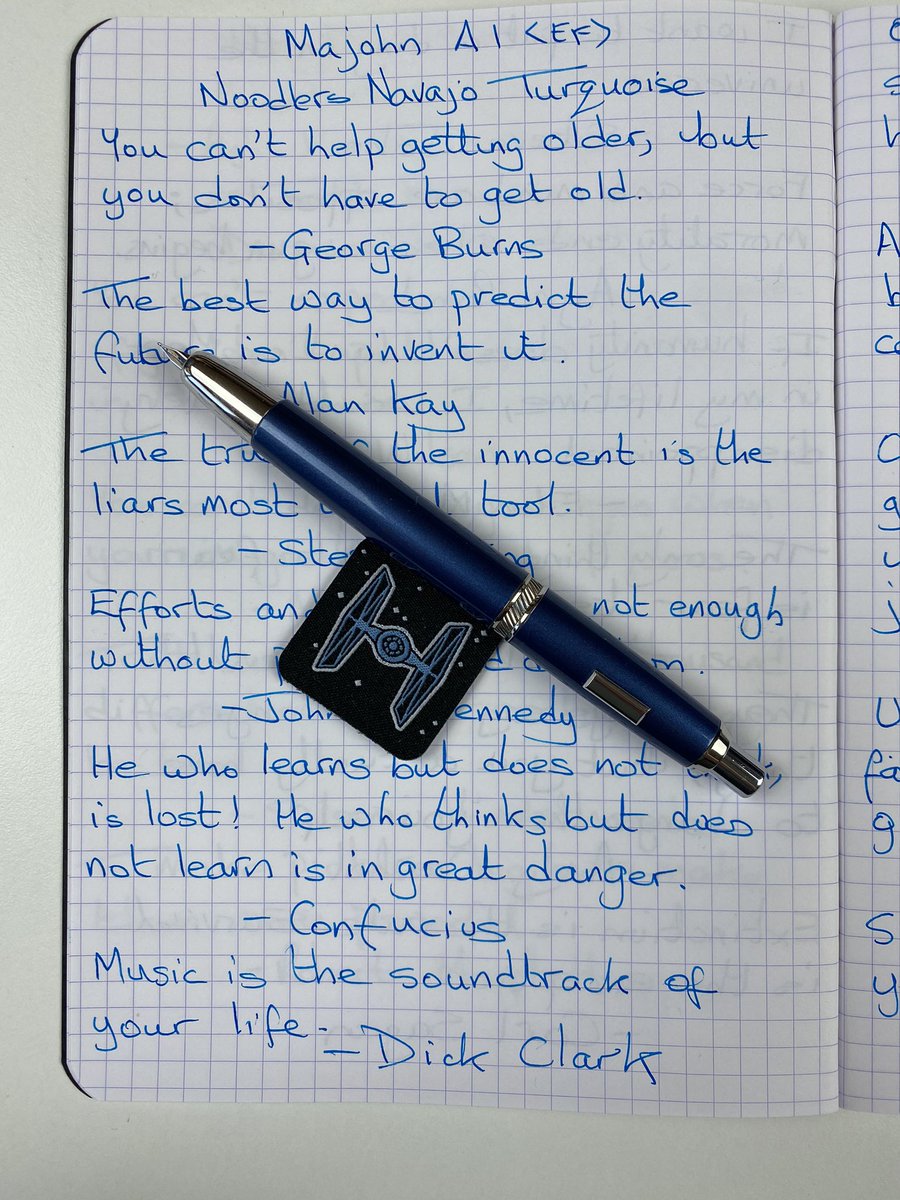 Majohn A1 <EF>
Noodlers Navajo Turquoise
You can't help getting older, but
you don't have to get old.
- George Burns
The best way to predict the
future is to invent it.
Alan Kay
The the innocent is the
liars most tool.
-
Efforts and not enough
without
- John Kennedy
He who learns but does not
is lost! He who thinks but does
not learn is in great danger.
- Confucius
Music is the soundtrack of
your life.
- Dick Clark
A
b
g
j
U
g
S
y